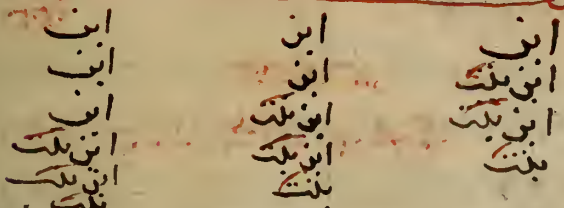 ابن
ابن بنت
ابن بنت
بنت
ابن
ابن
ابن بنت
ابن بنت
بنت
ابن
ابن
ابن
ابن بنت
ابن بنت
بنت